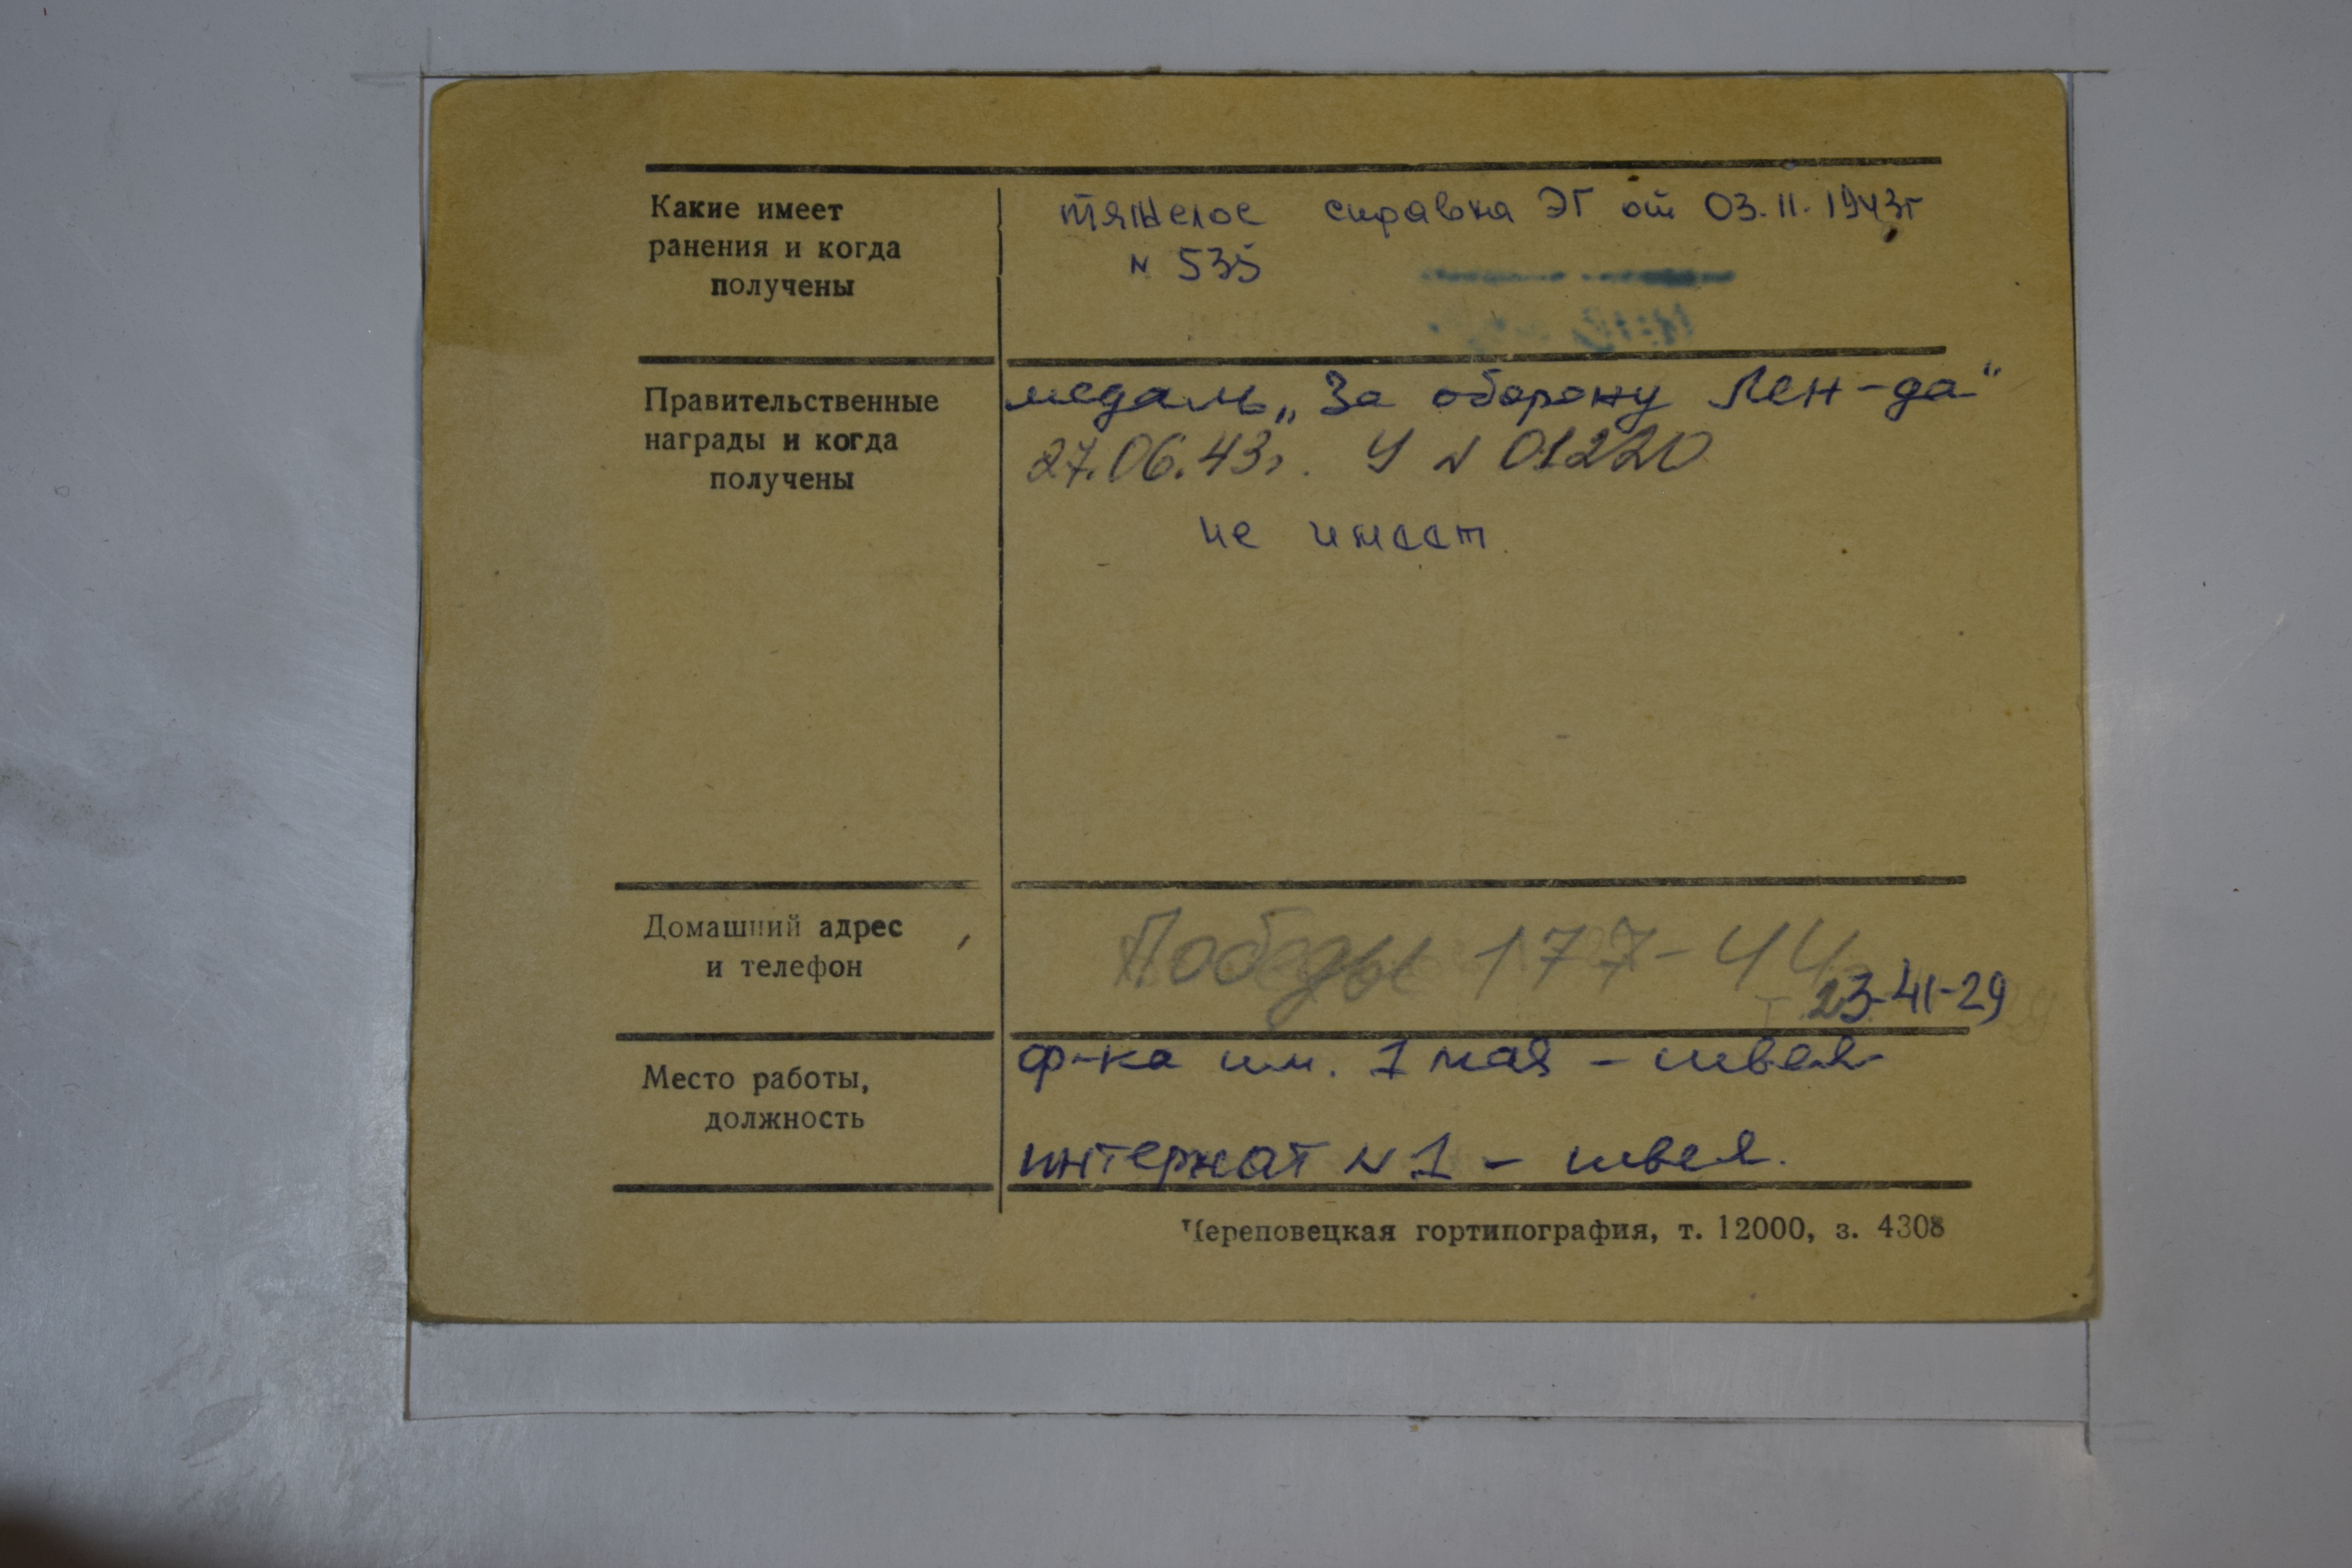 Какие имеет
ранения и когда
получены
тяжелое справка ЭГ от 03.11.1943г
N 535
Правительственные
награды и когда
получены
медаль „За оборону Лен-да“
27.06.43г. У N 01220
не имеет.
Домашний адрес
и телефон
Победы 177-44
т. 23-41-29
Место работы,
должность
ф-ка им. 1 мая - швея
интернат N 1 - швея.
Череповецкая гортипография, т. 12000, з. 4308